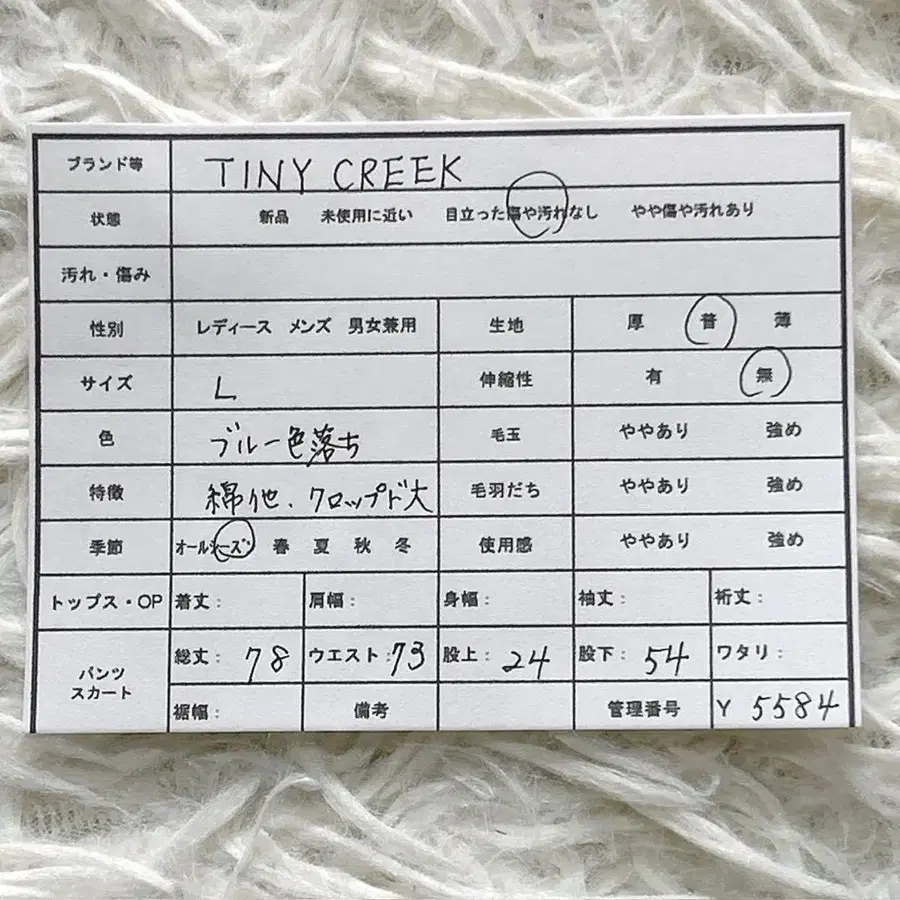 ブランド等 TINY CREEK
状態 新品 未使用に近い 目立った傷や汚れなし やや傷や汚れあり
汚れ・傷み
性別 レディース メンズ 男女兼用 生地 厚 普 薄
サイズ L 伸縮性 有 無
色 ブルー色落ち 毛玉 ややあり 強め
特徴 綿他、クロップド丈 毛羽だち ややあり 強め
季節 オールシーズン 春 夏 秋 冬 使用感 ややあり 強め
トップス・OP 着丈: 肩幅: 身幅: 袖丈: 裄丈:
パンツ
スカート
総丈: 78 ウエスト: 73 股上: 24 股下: 54 ワタリ:
裾幅: 備考 管理番号 Y 5584